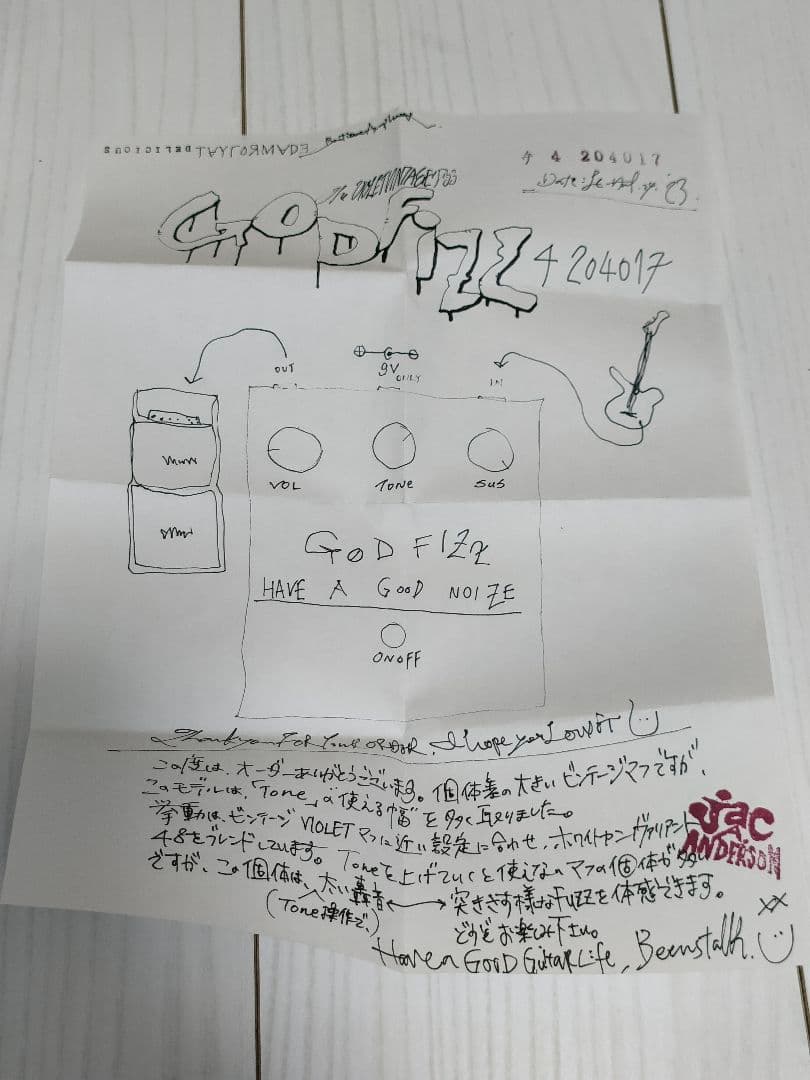 EDAMROLYAT DELICIOUS
4 204017
Date:
The VIOLET VINTAGE
GODFiZZ 4204017
OUT
9V ONLY
IN
VOL
TONE
SUS
GOD FIZZ
HAVE A GOOD NOIZE
ONOFF
Thank you FOR Your ORDER, I hope you Love it
この度は、オーダーありがとうございます。個体差の大きいビンテージマフですが、
このモデルは、「Tone」の"使える幅"を多く取りました。
挙動は、ビンテージVIOLETマフに近い設定に合わせ、ホワイトヤンヴァリアント
48をブレンドしています。Toneを上げていくと使えないマフの個体が多い
ですが、この個体は、太い轟音
(Tone操作で、)
突きさす様なFUZZを体感できます。
どうぞお楽しみ下さい。
Jac
ANDERSON
Have a GOOD GuitaR Life, Beenstalk.
xx